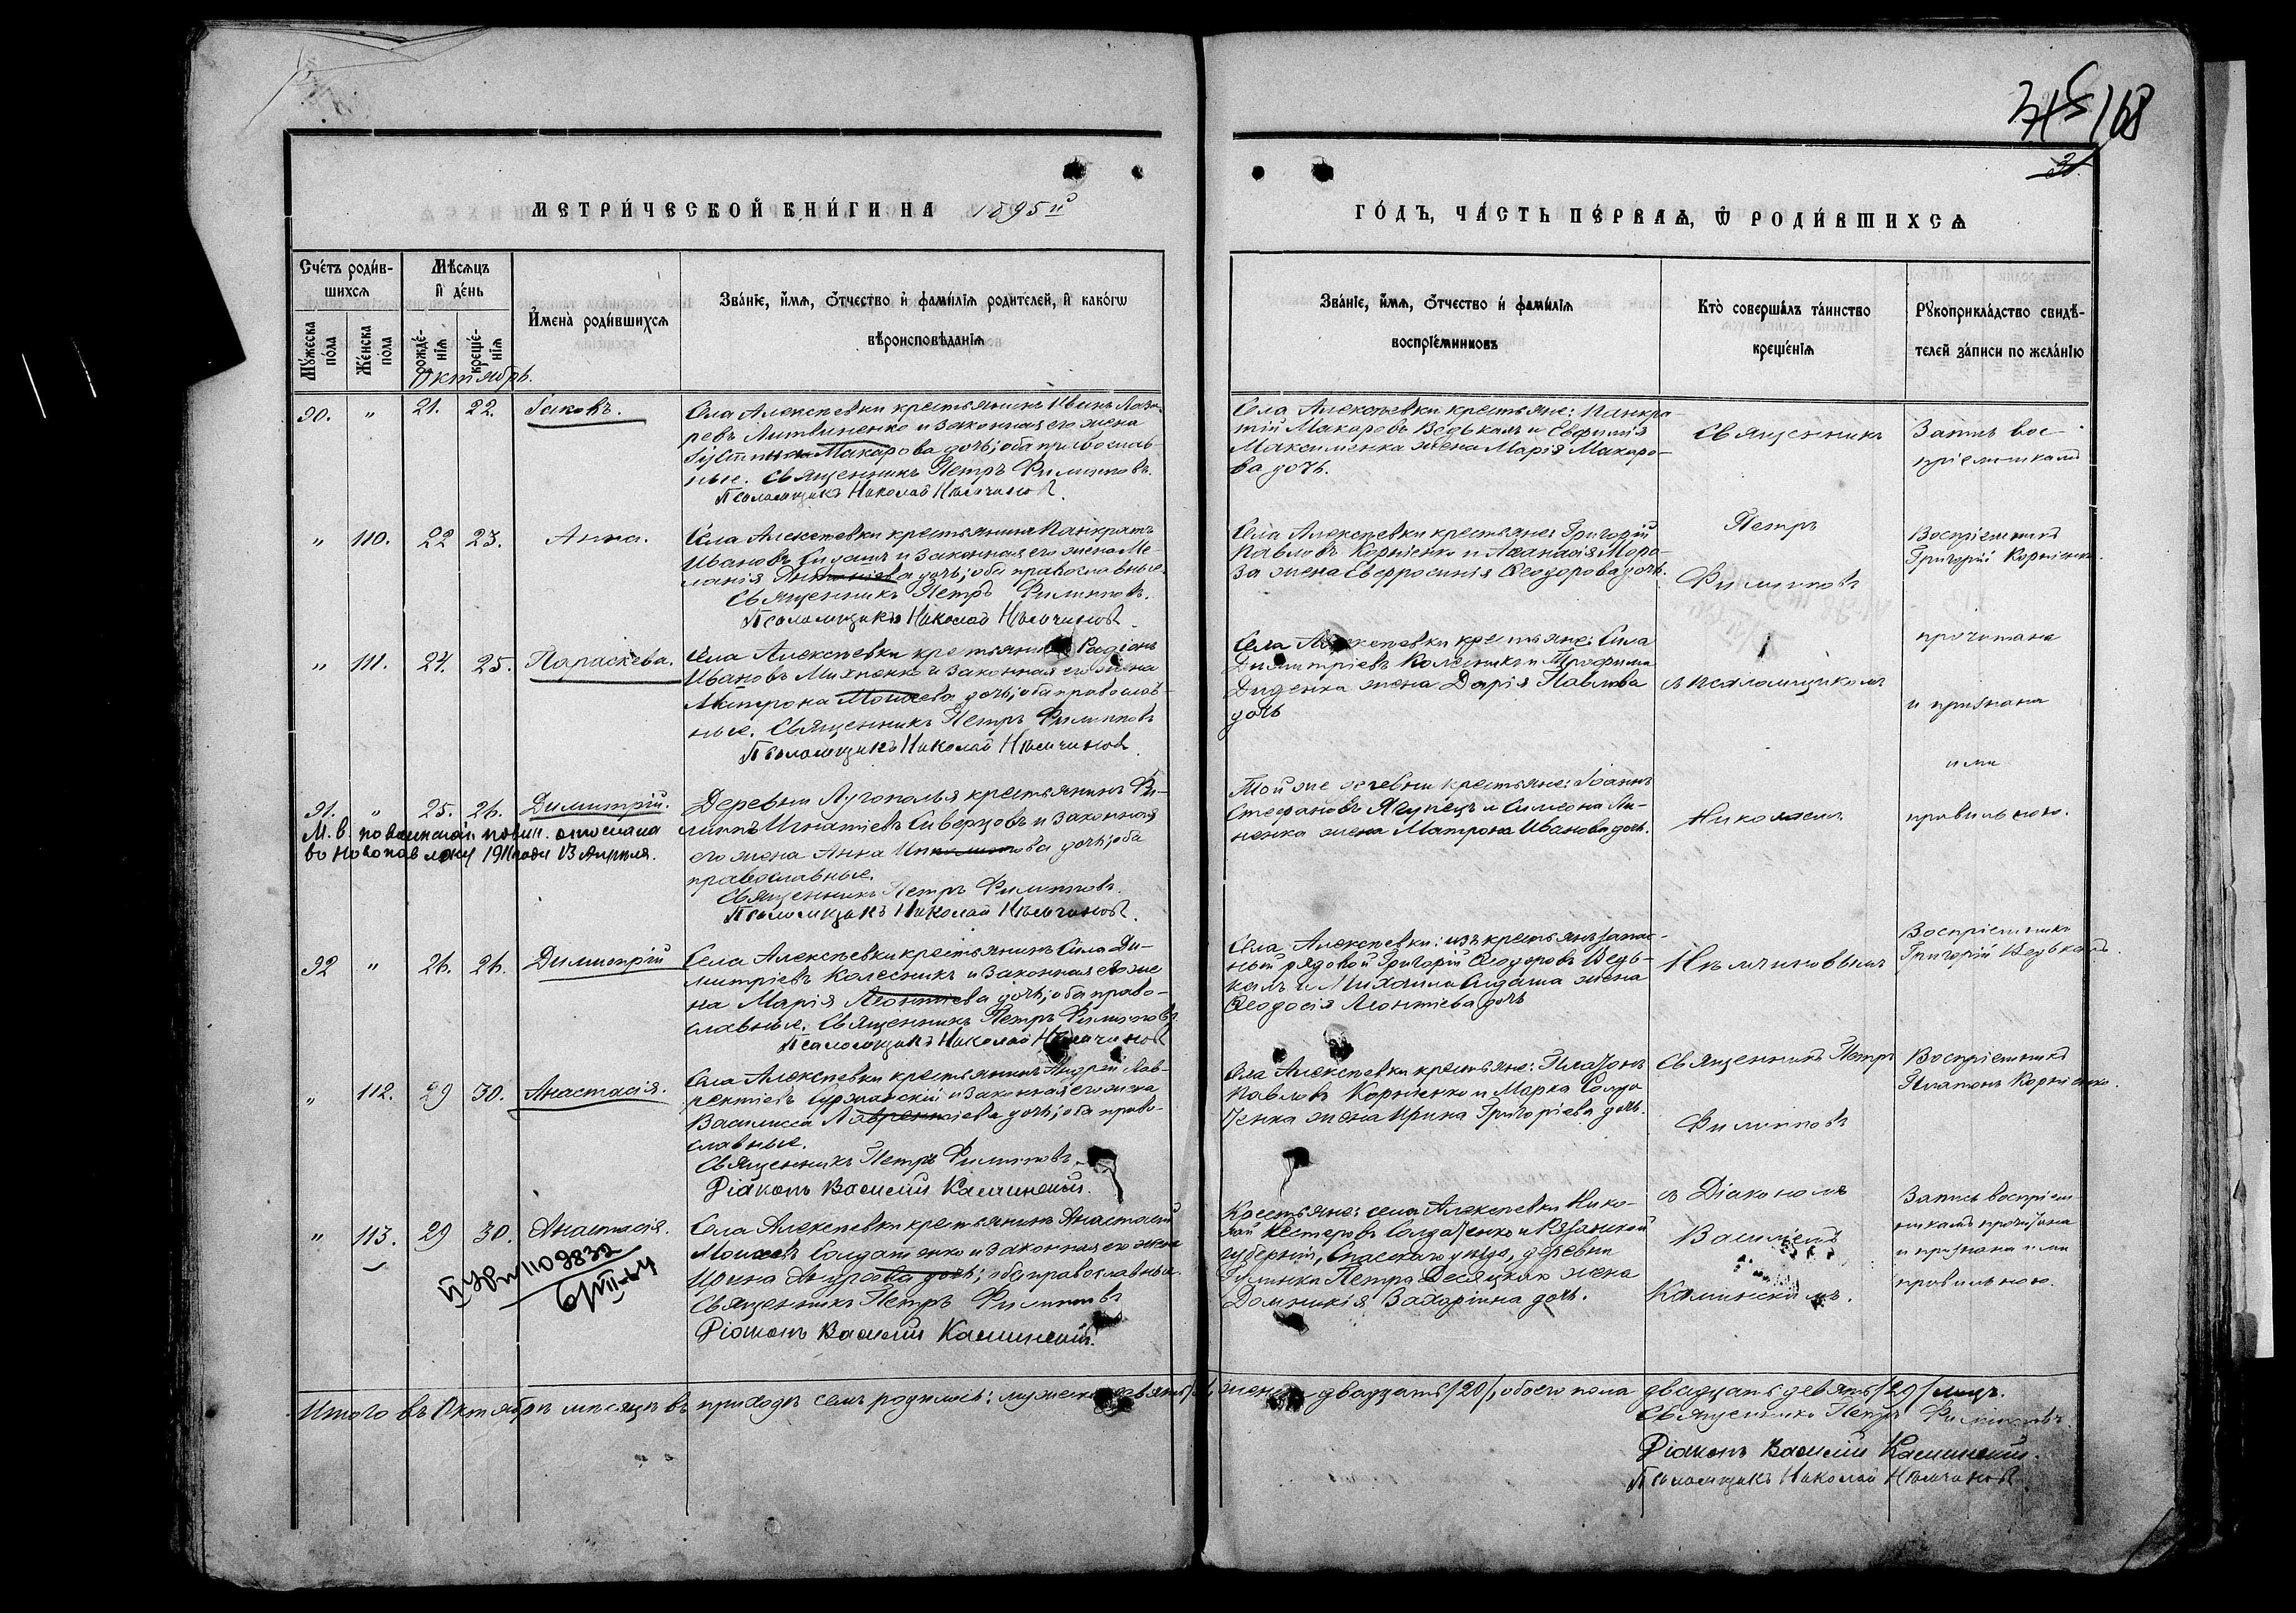 168
31.
МЕТРИ́ЧЕСКОЙ КНИ́ГИ НА 1895й
ГО́ДЪ, ЧА́СТЬ ПЕ́РВАѦ, Ѿ РОДИ́ВШИХСѦ
Сче́тъ роди́вшихсѧ
Мѣ́сѧцъ и҆ де́нь
И҆мена̀ роди́вшихсѧ
Зва́нїе, и҆́мѧ, ѻ҆́тчество и҆ фами́лїѧ роди́телей, и҆ како́гѡ
вѣроисповѣ́данїѧ
Мꙋ́жеска по́ла
Же́нска по́ла
рожде́нїѧ
креще́нїѧ
Зва́нїе, и҆́мѧ, ѻ҆́тчество и҆ фами́лїѧ
воспрїе́мниковъ
Кто̀ соверша́лъ та́инство
креще́нїѧ
Рꙋкоприкла́дство свидѣ́-
телей за́писи по жела́нїю
Октябрь.
90. " 21. 22. Іаковъ.
Села Алексѣевки крестьянинъ Иванъ Лаза-
ревъ Литвиненко и законная его жена
Іустина Макарова дочь; оба православ-
ные. Священникъ Петръ Филипповъ.
Псаломщикъ Николай Нѣмчиновъ.
Села Алексѣевки крестьяне: Панкра-
тій Макаровъ Ведькалъ и Евфимія
Максименка жена Марія Макаро-
ва дочь.
Священникъ
Запись вос-
пріемниками
" 110. 22 23. Анна.
Села Алексѣевки крестьянинъ Панкратъ
Ивановъ Сидашъ и законная его жена Ме
ланія дочь; оба православные.
Священникъ Петръ Филипповъ.
Псаломщикъ Николай Нѣмчиновъ.
Села Алексѣевки крестьяне: Григорій
Павловъ Корніенко и Аѳанасія Моро-
за жена Евфросинія Ѳеодорова дочь.
Петръ
Филипповъ
Воспріемникъ
Григорій Корніенко.
" 111. 24. 25. Параскева.
Села Алексѣевки крестьянинъ Радіонъ
Ивановъ Михненко и законная его жена
Матрона Моисеева дочь; оба православ-
ные. Священникъ Петръ Филипповъ
Псаломщикъ Николай Нѣмчиновъ.
Села Алексѣевки крестьяне: Сила
Димитріевъ Колесникъ и Трофима
Диденка жена Дарія Павлова
дочь
съ псаломщикомъ
прочитана
и признана
ими
91. " 25. 26. Димитрій.
М. в. по воинской повин. отослана
во Новопавловку 1911 года 13 Апрѣля.
Деревни Лугополья крестьянинъ Фи-
липпъ Игнатіевъ Сиверцовъ и законная
его жена Анна дочь; оба
православные.
Священникъ Петръ Филипповъ.
Псаломщикъ Николай Нѣмчиновъ.
Той же деревни крестьяне: Іоаннъ
Стефановъ Ягупецъ и Симеона Ли-
ненка жена Матрона Иванова дочь.
Николаемъ
правильною.
92 " 26. 26. Димитрій
Села Алексѣевки крестьянинъ Сила Ди-
митріевъ Колесникъ и законная его же
на Марія Леонтіева дочь; оба право-
славные. Священникъ Петръ Филипповъ.
Псаломщикъ Николай Нѣмчиновъ
Села Алексѣевки: изъ крестьянъ запас-
ный рядовой Григорій Ѳеодоровъ Ведь-
калъ и Михаила Сидаша жена
Ѳеодосія Леонтіева дочь
Нѣмчиновымъ
Воспріемникъ
Григорій Ведькалъ
" 112. 29 30. Анастасія.
Села Алексѣевки крестьянинъ Андрей Лав-
рентіевъ Суржанскій и законная его жена
Василисса Лаврентіева дочь; оба право-
славные.
Священникъ Петръ Филипповъ.
Діаконъ Василій Калинскій.
Села Алексѣевки крестьяне: Платонъ
Павловъ Корніенко и Марка Солда
тенка жена Ирина Григоріева дочь.
Священникъ Петръ
Филипповъ
Воспріемникъ
Платонъ Корніенко.
" 113. 29 30. Анастасія.
1109832
Села Алексѣевки крестьянинъ Анастасій
Моисеевъ Солдатенко и законная его жена
Ирина Андреева дочь; оба православные.
Священникъ Петръ Филипповъ
Діаконъ Василій Калинскій.
Крестьяне: села Алексѣевки Нико-
лай Нестеровъ Солдатенко и Рязанской
губерніи, Спасскаго уѣзда, деревни
Петра Десяцкаго жена
Домникія Захаріина дочь.
съ Діакономъ
Василіемъ
Калинскимъ.
Запись воспріем
никамъ прочитана
и признана ими
правильною.
Итого въ Октябрѣ мѣсяцѣ въ приходѣ семъ родилось: мужеска девять женска двадцать /20/, обоего пола двадцать девять /29/ лицъ.
Священникъ Петръ Филипповъ.
Діаконъ Василій Калинскій.
Псаломщикъ Николай Нѣмчиновъ.